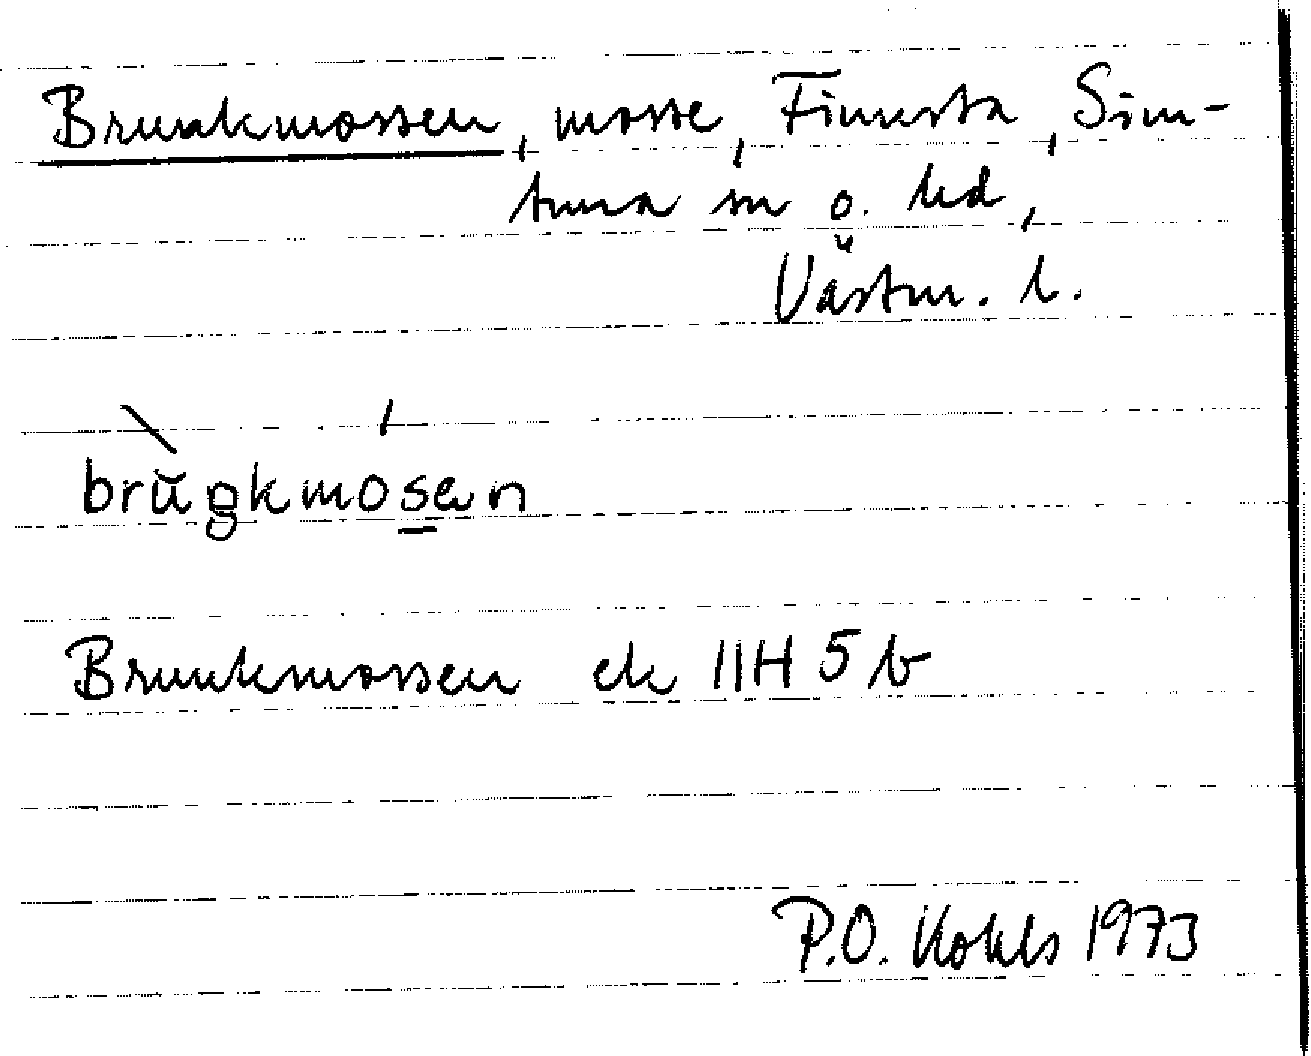 Brunkmossen, mosse, Finnsta, Sim-
tuna sn o. hd,
Västm. l.
brŭŋkmosen
Brunkmossen ek 11H 5b
P.O. Kohls 1973